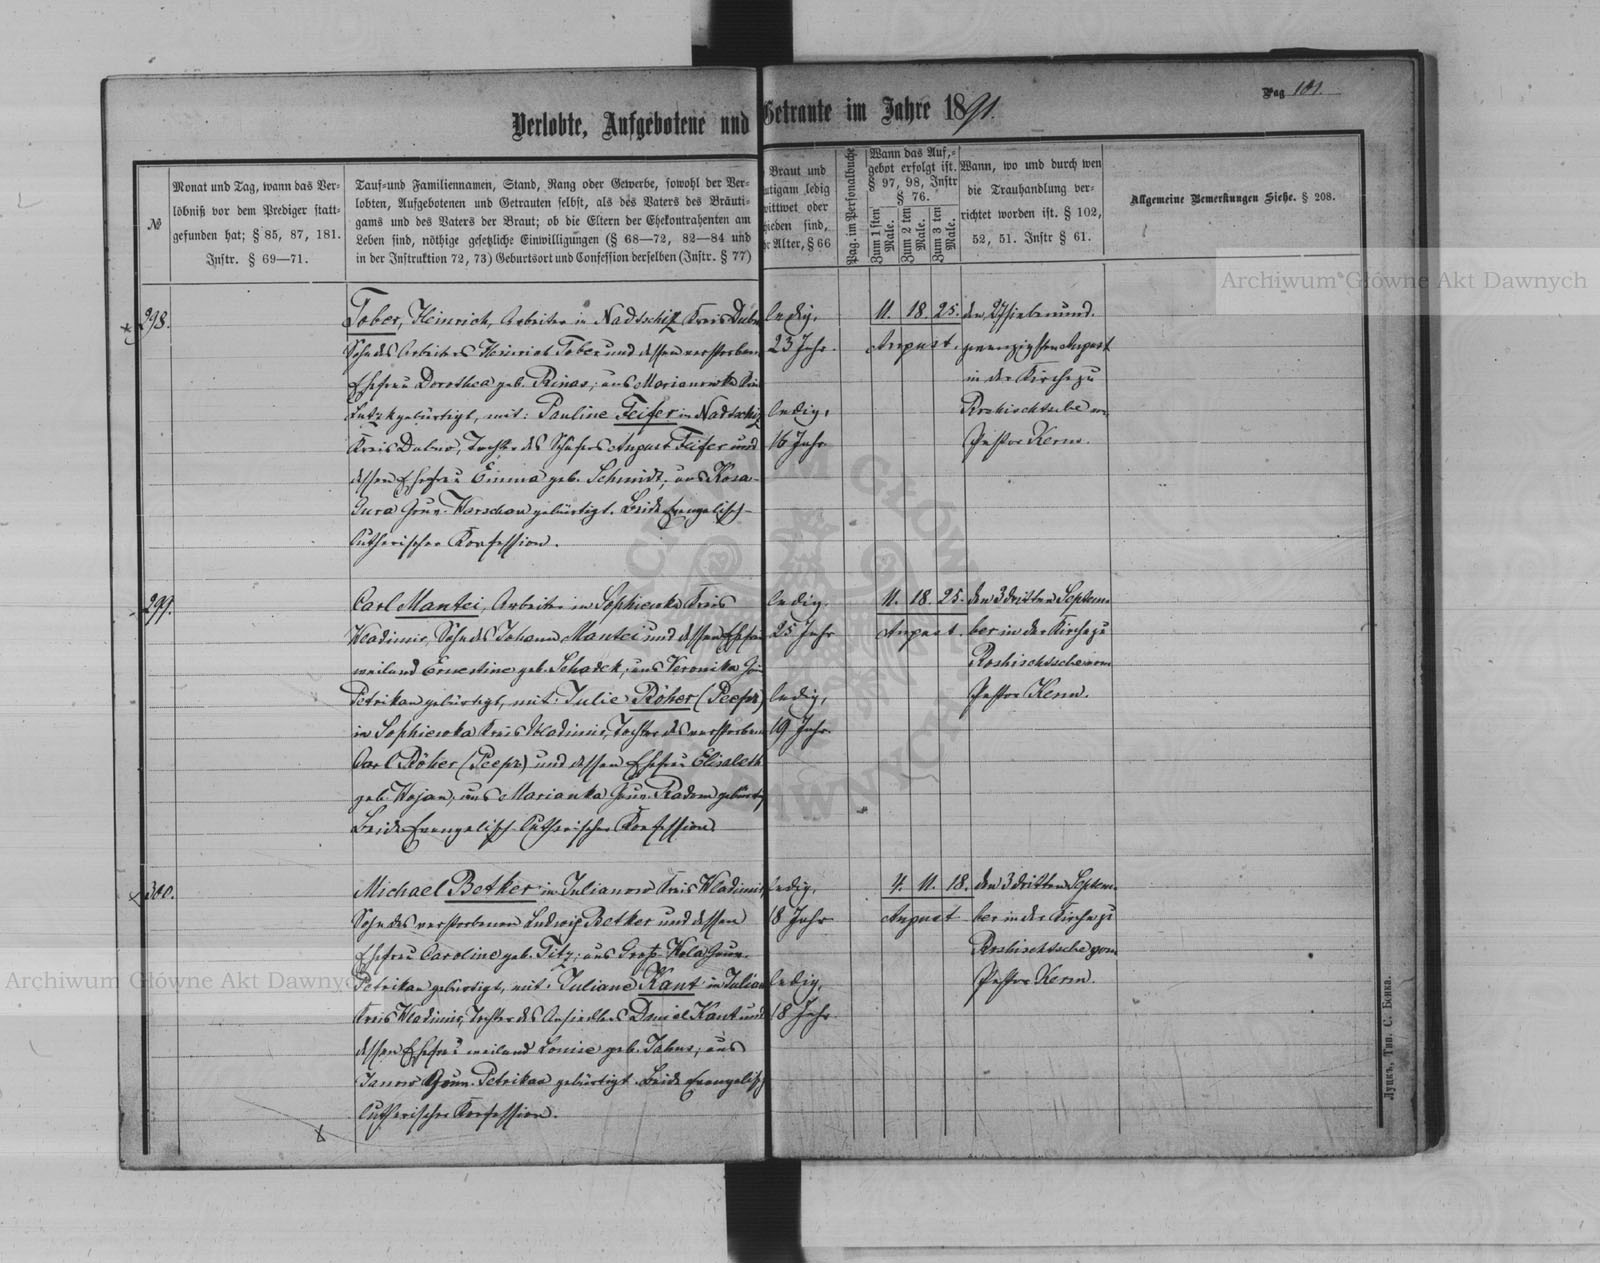 Pag 101.
Verlobte, Aufgebotene und Getraute im Jahre 1891.
№
Monat und Tag, wann das Ver-
löbniß vor dem Prediger statt-
gefunden hat; § 85, 87, 181.
Instr. § 69—71.
Tauf-und Familiennamen, Stand, Rang oder Gewerbe, sowohl der Ver-
lobten, Aufgebotenen und Getrauten selbst, als des Vaters des Bräuti-
gams und des Vaters der Braut; ob die Eltern der Ehekontrahenten am
Leben sind, nöthige gesetzliche Einwilligungen (§ 68—72, 82—84 und
in der Instruktion 72, 73) Geburtsort und Confession derselben (Instr. § 77)
Braut und
utigam ledig
wittwet oder
ieden sind,
r Alter, § 66
Pag. im Personalbuche
Wann das Auf-
gebot erfolgt ist.
§ 97, 98, Instr
§ 76.
Zum 1 sten Male.
Zum 2 ten Male.
Zum 3 ten Male.
Wann, wo und durch wen
die Trauhandlung ver-
richtet worden ist. § 102,
52, 51. Instr § 61.
Allgemeine Bemerkungen Siehe. § 208.
298.
Tober, Heinrich, Arbeiter in Nadtschitz Kreis Dubno
Sohn des Arbeiters Heinrich Tober und dessen verstorben
Ehefrau Dorothea geb. Rinas; aus Marianowka Kreis
Lutzk gebürtigt, mit: Pauline Feifer in Nadtschitz
Kreis Dubno, Tochter des August Feifer und
dessen Ehefrau Emma geb. Schmidt; aus Kosa-
Gura Gouv. Warschau gebürtigt. Beide Evangelisch-
lutherischer Konfession.
ledig,
23 Jahr.
ledig,
16 Jahr
11. 18. 25.
August.
den 27 sieben und
zwanzigsten August
in der Kirche zu
Roshischtsche vom
Pastor Kerm.
299.
Carl Mantei, Arbeiter in Sophiewka Kreis
Wladimir, Sohn des Johann Mantei und dessen Ehefrau
weiland Ernestine geb. Schadek; aus Veronika Gou
Petrikau gebürtigt, mit: Julie Röher (Peepr)
in Sophiewka Kreis Wladimir, Tochter des verstorben
Carl Röher (Peepr) und dessen Ehefrau Elisabeth
geb. Wojan; aus Marianka Gouv. Radom gebürtig
Beide Evangelisch-lutherischer Konfession
ledig.
25 Jahr
ledig,
19 Jahr.
11. 18. 25.
August.
den 3 dritten Septem-
ber in der Kirche zu
Roshischtsche vom
Pastor Kerm.
300.
Michael Betker in Julianow Kreis Wladimir,
Sohn des verstorbenen Ludwig Betker und dessen
Ehefrau Caroline geb. Titz; aus Groß-Wola Gouv.
Petrikau gebürtigt, mit: Juliane Kant in Julian
Kreis Wladimir, Tochter des Ansiedlers Daniel Kant und
dessen Ehefrau weiland Louise geb. Jahns; aus
Janow Gouv. Petrikau gebürtigt. Beide Evangelisch
lutherischer Konfession.
ledig,
18 Jahr
ledig,
18 Jahr
4. 11. 18.
August
den 3 dritten Septem-
ber in der Kirche zu
Roshischtsche vom
Pastor Kerm.
Луцкъ, Тип. С. Бенка.
Archiwum Główne Akt Dawnych
Archiwum Główne Akt Dawnych